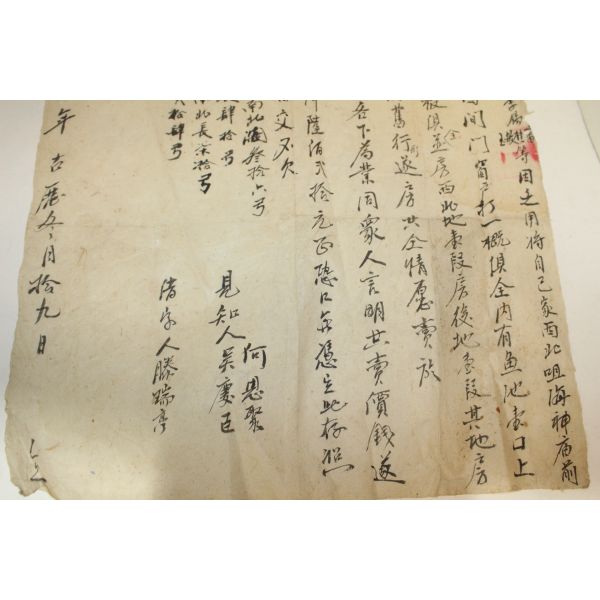 等因乏用將自己家西北咀海神庙前
间门窗戶打一概俱全内有鱼池壹口上
俱並房西北地壹段房後地壹段其地房
舊行遂房共全情愿賣於
名下為業同眾人言明共賣價錢遂
陸佰弍拾元正恐口無憑立此存照
交不欠
南北濶叁拾六弓
肆拾弓
北長柒拾弓
拾肆弓
何恩聚
見知人吴慶臣
清字人滕瑞亭
年古厯冬月拾九日 立